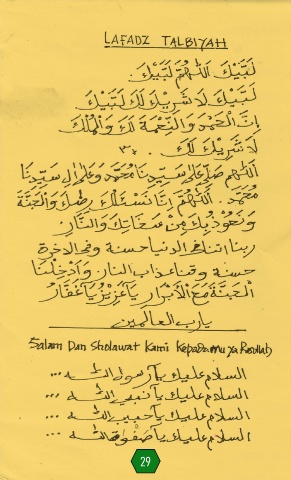 LAFADZ TALBIYAH
لَبَّيْكَ اَللّٰهُمَّ لَبَّيْكَ.
لَبَّيْكَ لَا شَرِيْكَ لَكَ لَبَّيْكَ
اِنَّ الْحَمْدَ وَالنِّعْمَةَ لَكَ وَالْمُلْكَ
لَا شَرِيْكَ لَكَ. ٣×
اَللّٰهُمَّ صَلِّ عَلٰى سَيِّدِنَا مُحَمَّدٍ وَعَلٰى اٰلِ سَيِّدِنَا
مُحَمَّدٍ. اَللّٰهُمَّ اِنَّا نَسْئَلُكَ رِضَاكَ وَالْجَنَّةَ
وَنَعُوْذُ بِكَ مِنْ سَخَاتِكَ وَالنَّارِ.
ربنا اتنا في الدنيا حسنة وفي الاخرة
حسنة وقنا عذاب النار وَاَدْخِلْنَا
الْجَنَّةَ مَعَ الْاَبْرَارِ يَا عَزِيْزُ يَا غَفَّارُ
يارب العالمين
Salam Dan Sholawat Kami Kepadamu Ya Rosullah
السلام عليك يا رسول الله ...
السلام عليك يا نبي الله ...
السلام عليك يا حبيب الله ...
السلام عليك يا صفوة الله ...
29